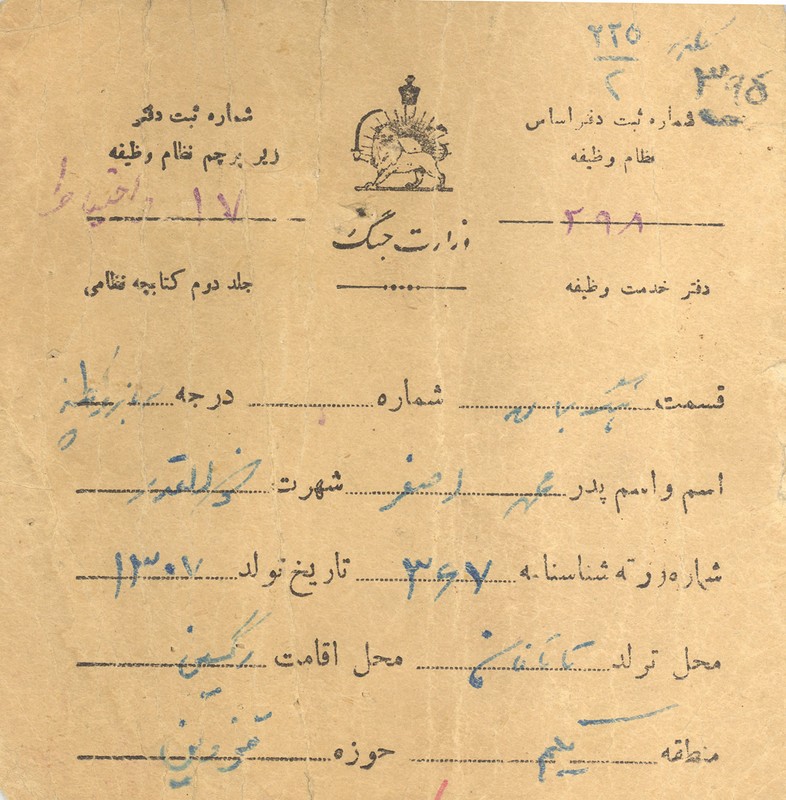 ۲۲۵
۲
۳۹۵
شماره ثبت دفتر اساس
نظام وظیفه
۲۹۸
شماره ثبت دفتر
زیر پرچم نظام وظیفه
۱۷ احتیاط
وزارت جنگ
دفتر خدمت وظیفه
جلد دوم کتابچه نظامی
قسمت شماره درجه
اسم و اسم پدر اصغر شهرت
شماره ورقه شناسنامه ۳۶۷ تاریخ تولد ۱۳۰۷
محل تولد محل اقامت
منطقه یکم حوزه قزوین